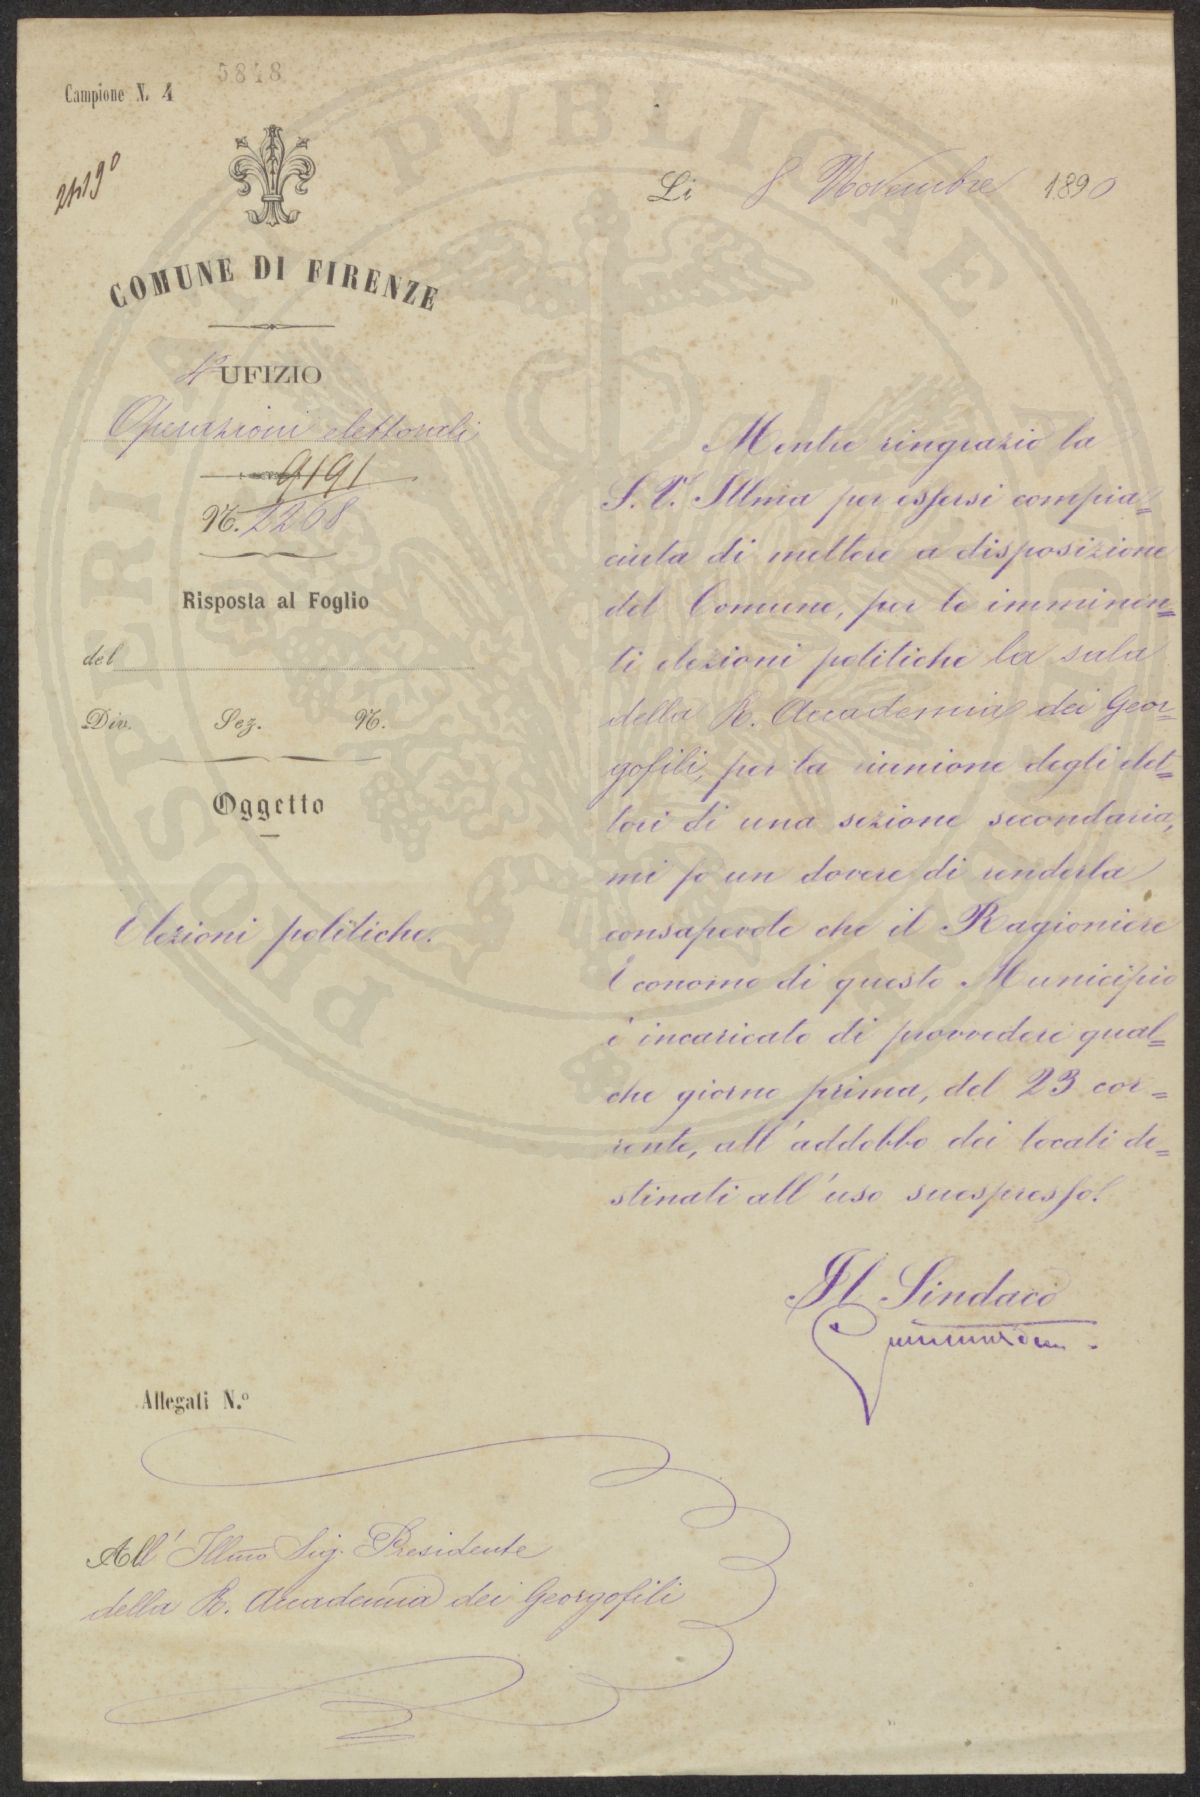 5848
Campione N. 4
COMUNE DI FIRENZE
4° UFIZIO
Operazioni elettorali
9191
N. 2268
Risposta al Foglio
del
Div. Sez. N.
Oggetto
Elezioni politiche.
Li 8 Novembre 1890
Mentre ringrazio la
S. V. Illma per essersi compia=
ciuta di mettere a disposizione
del Comune, per le imminen=
ti elezioni politiche la sala
della R. Accademia dei Geor=
gofili, per la riunione degli elet=
tori di una sezione secondaria,
mi fo un dovere di renderla
consapevole che il Ragioniere
Economo di questo Municipio
è incaricato di provvedere qual=
che giorno prima, del 23 cor=
rente, all'addobbo dei locali de=
stinati all'uso suespresso.
Il Sindaco
Allegati N.°
All' Illmo Sig. Presidente
della R. Accademia dei Georgofili
PROSPERITATI PUBLICAE AUGENDAE